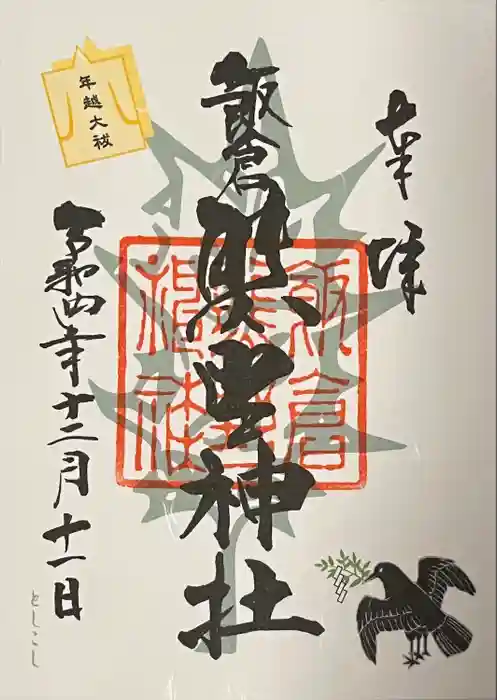 奉拝
飯倉
熊野神社
飯倉熊野神社
年越大祓
令和四年十二月十一日
としこし